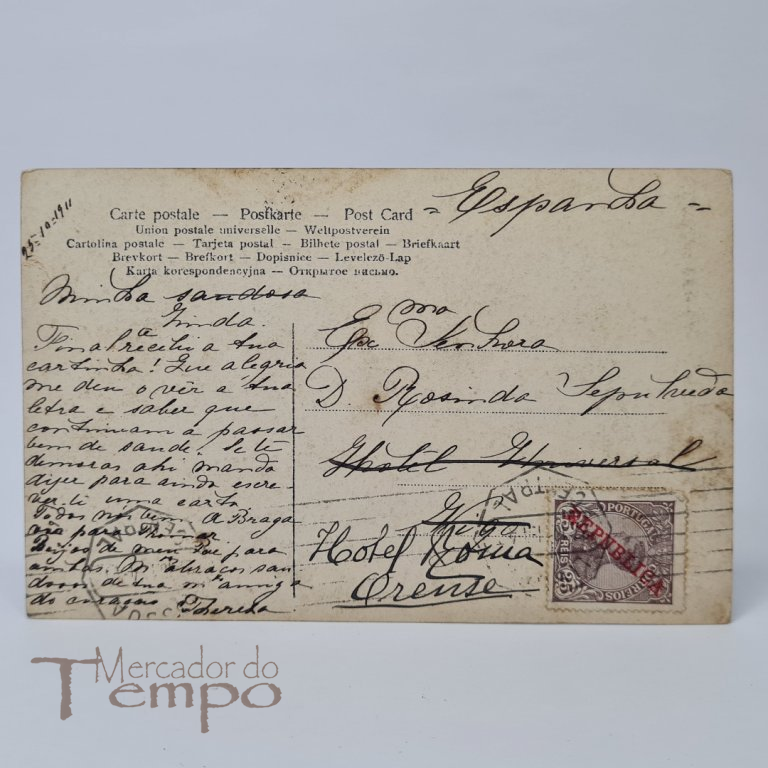 25-10-1911
Carte postale — Postkarte — Post Card
= Espanha =
Union postale universelle — Weltpostverein
Cartolina postale — Tarjeta postal — Bilhete postal — Briefkaart
Brevkort — Brefkort — Dopisnice — Levelező-Lap
Karta korespondencyjna — Открытое письмо.
Minha saudosa
Ginda.
Final recebi a tua
cartinha! Que alegria
me deu o vêr a tua
letra e saber que
continuam a passar
bem de saude. Se te
demoras ahi manda
dizer para ainda escre-
ver-ti uma carta
Todos nós bem. A Braga
vão para
Beijos de meu Pai para
ambas. Mil abraços sau
dosos de tua mᵗᵒ amiga
do coração Thereza
Exma Senhora
D Rosinda Sepulveda
Hotel Universal
Vigo
Hotel Roma
Orense
CENTRAL
PORTUGAL
CORREIOS
25 REIS 25
REPUBLICA
Mercador do
Tempo